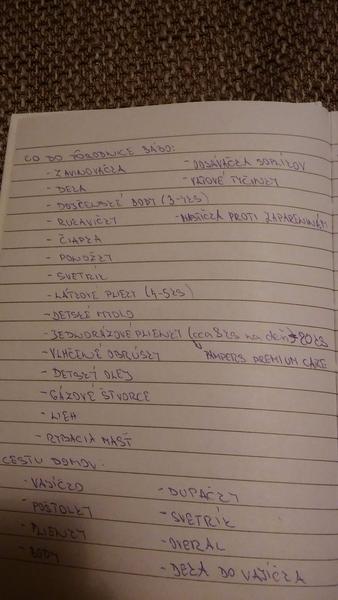 ČO DO PÔRODNICE BÁBO:
- ZAVINOVAČKA
- ODSÁVAČKA SOPLÍKOV
- DEKA
- VATOVÉ TYČINKY
- DOJČENSKÉ BODY (3-4ks)
- RUKAVIČKY
- MASTIČKA PROTI ZAPARENINÁM
- ČIAPKA
- PONOŽKY
- SVETRÍK
- LÁTKOVÉ PLIENKY (4-5ks)
- DETSKÉ MYDLO
- JEDNORÁZOVÉ PLIENKY (cca 8ks na deň → 20ks
PAMPERS PREMIUM CARE
- VLHČENÉ OBRÚSKY
- DETSKÝ OLEJ
- GÁZOVÉ ŠTVORCE
- LIEH
- RYBACIA MASŤ
CESTU DOMOV:
- VAJÍČKO
- DUPAČKY
- POSTOLKY
- SVETRÍK
- PLIENKY
- OVERAL
- BODY
- DEKA DO VAJÍČKA